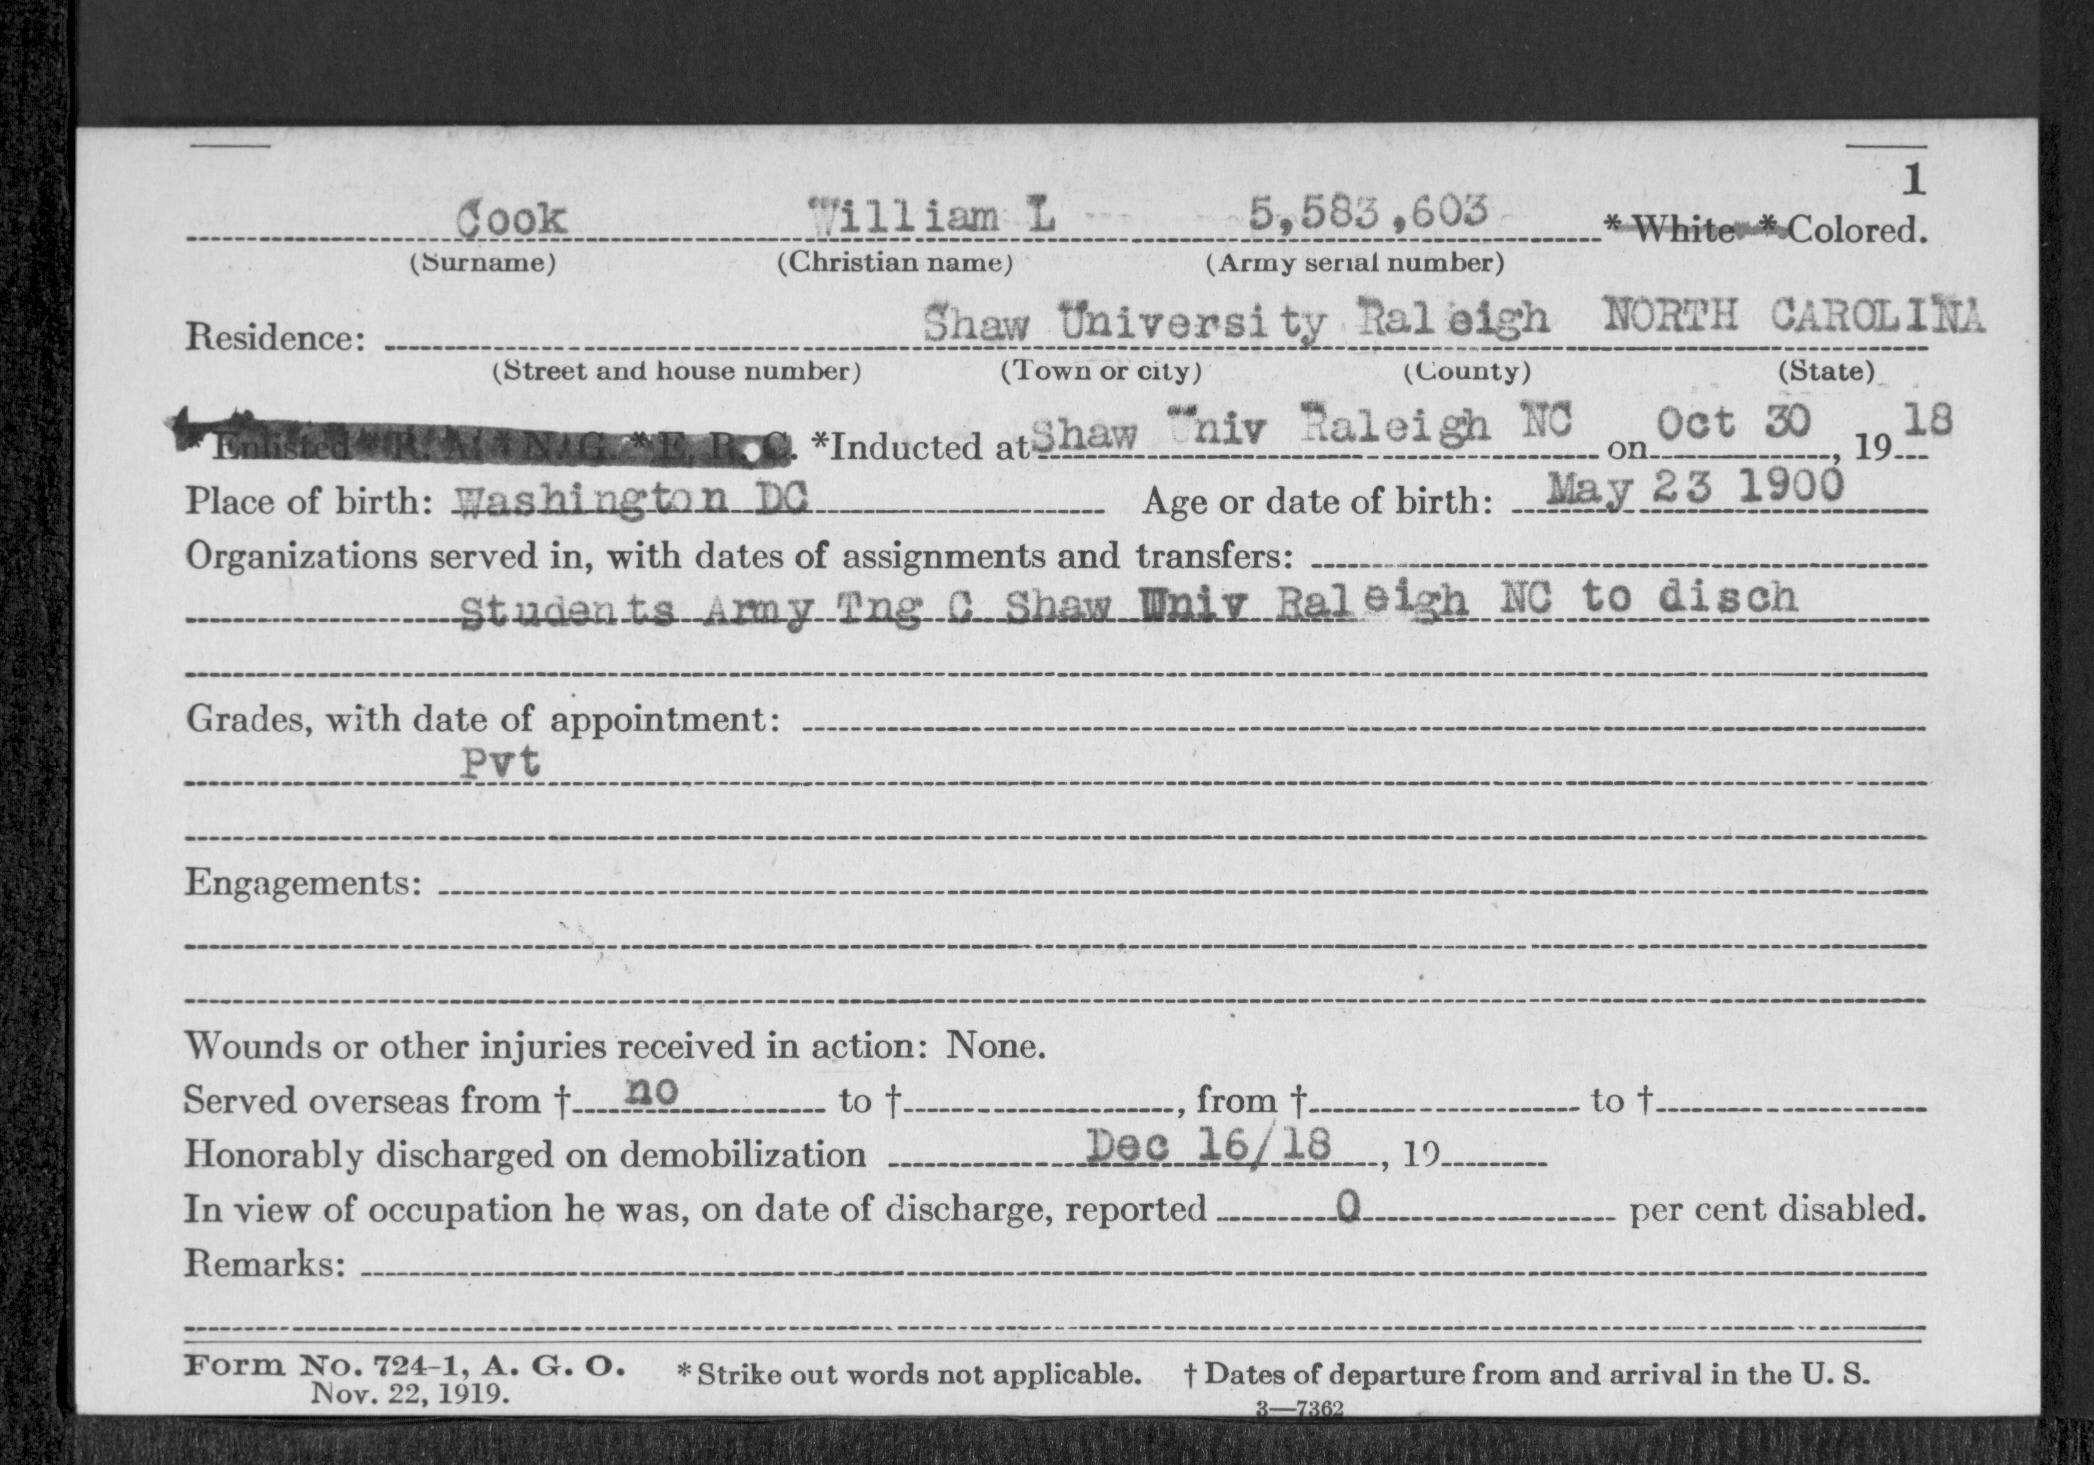 1
Cook William L 5,583,603 * White * Colored.
(Surname) (Christian name) (Army serial number)
Residence: Shaw University Raleigh NORTH CAROLINA
(Street and house number) (Town or city) (County) (State)
* Enlisted * R. A. * N. G. * E. R. C. *Inducted at Shaw Univ Raleigh NC on Oct 30, 1918
Place of birth: Washington DC Age or date of birth: May 23 1900
Organizations served in, with dates of assignments and transfers:
Students Army Tng C Shaw Univ Raleigh NC to disch
Grades, with date of appointment:
Pvt
Engagements:
Wounds or other injuries received in action: None.
Served overseas from † no to †, from † to †
Honorably discharged on demobilization Dec 16/18, 19
In view of occupation he was, on date of discharge, reported 0 per cent disabled.
Remarks:
Form No. 724-1, A. G. O. * Strike out words not applicable. † Dates of departure from and arrival in the U. S.
Nov. 22, 1919.
3—7362